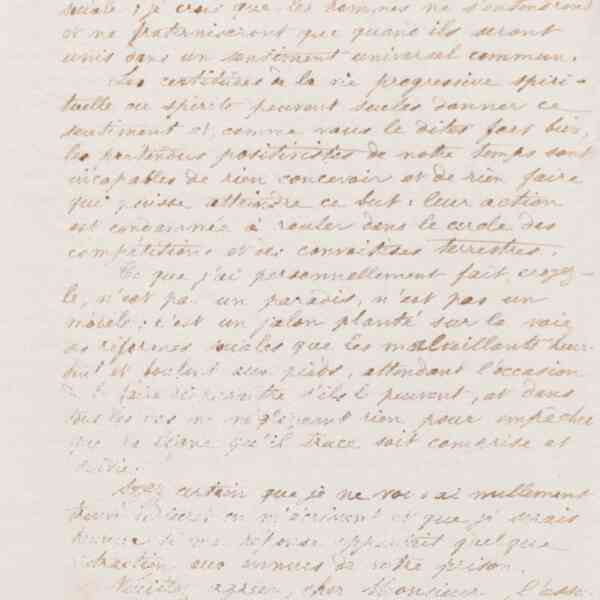 sociale ; je crois que les hommes ne s'entendront
et ne fraterniseront que quand ils seront
unis dans un sentiment universel commun.
Les certitudes de la vie progressive spiri-
tuelle ou spirite peuvent seules donner ce
sentiment et, comme vous le dites fort bien,
les prétendus positivistes de notre temps sont
incapables de rien concevoir et de rien faire
qui puisse atteindre ce but : leur action
est condamnée à rouler dans le cercle des
compétitions et des convoitises terrestres.
Ce que j'ai personnellement fait, croyez-
le, n'est pas un paradis, n'est pas un
modèle ; c'est un jalon planté sur la voie
des réformes sociales que les malveillants heur-
tent et foulent aux pieds, attendant l'occasion
de le faire disparaître s'ils le peuvent, et dans
tous les cas ne négligeant rien pour empêcher
que la ligne qu'il trace soit comprise et
suivie.
Soyez certain que je ne vous ai nullement
trouvé indiscret en m'écrivant et que je serais
heureux si ma réponse apportait quelque
distraction aux ennuis de votre prison.
Veuillez agréer, cher Monsieur, l'assu-